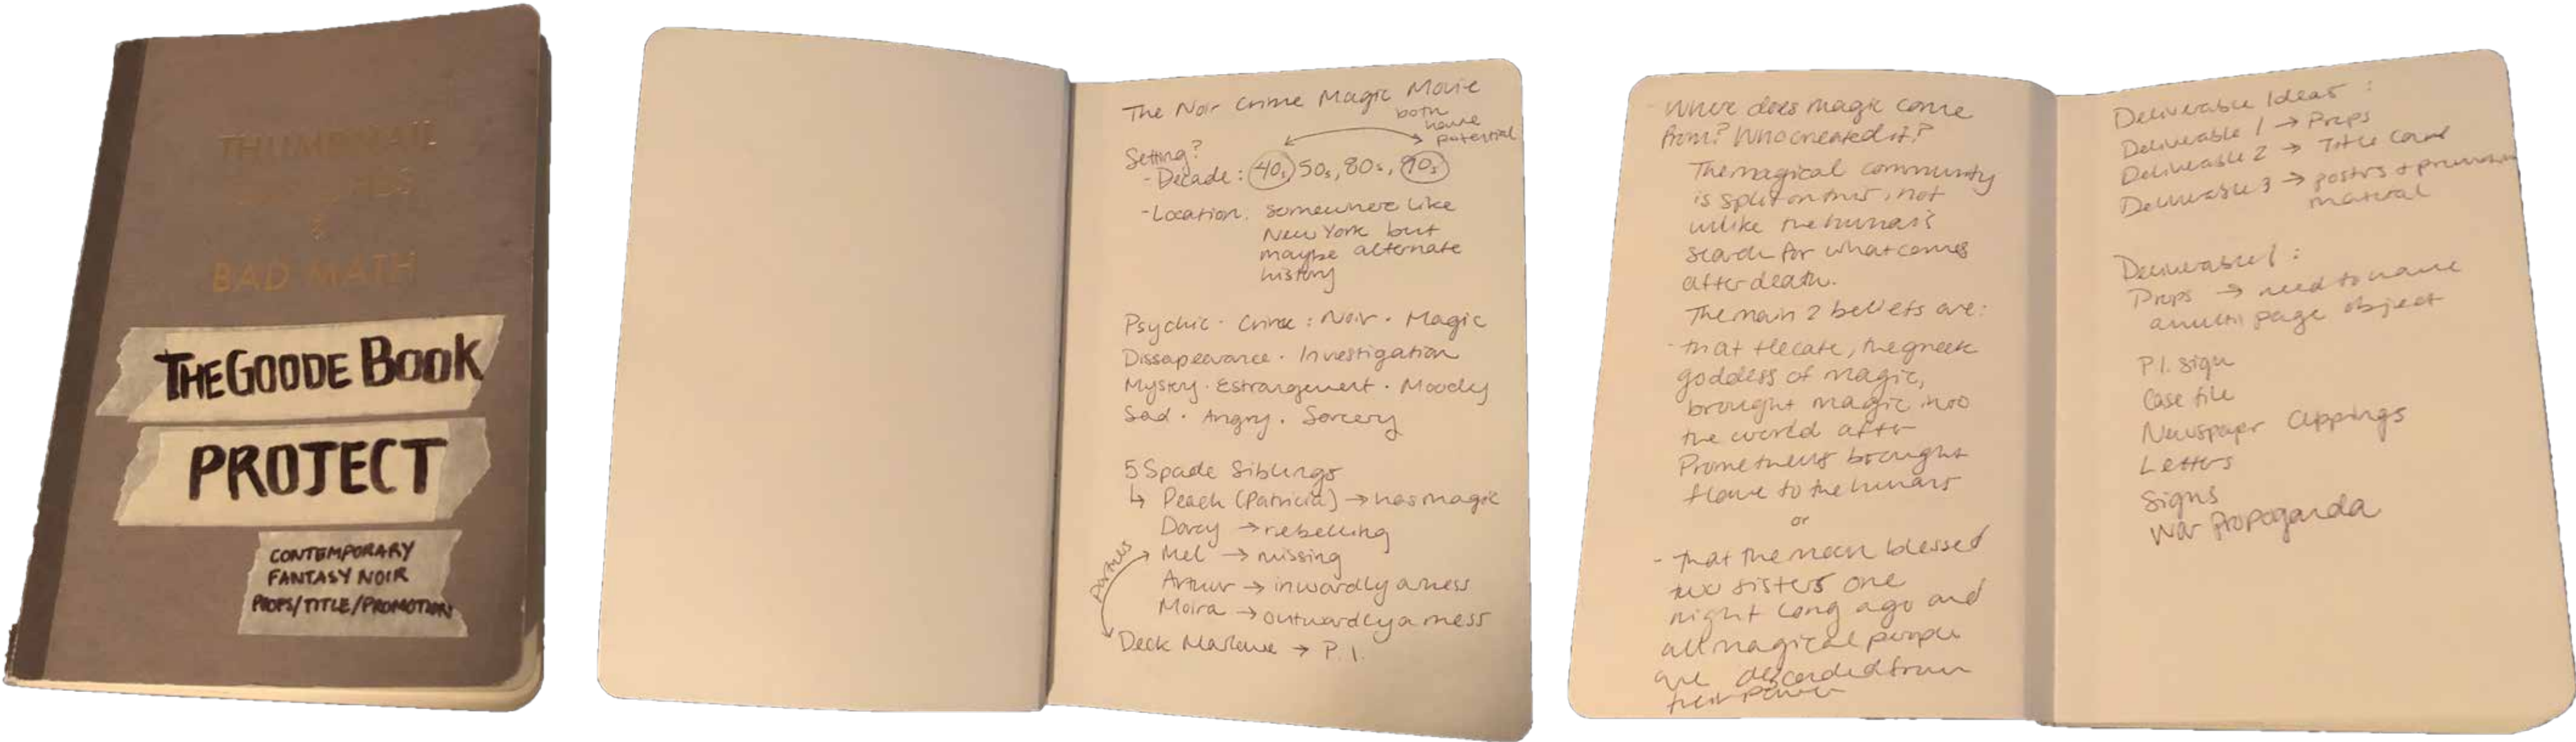 THUMBNAIL
&
BAD MATH
THE GOODE BOOK
PROJECT
CONTEMPORARY
FANTASY NOIR
PROPS/TITLE/PROMOTION
The Noir Crime Magic Movie
both
have
potential
Setting?
- Decade: 40s, 50s, 80s, 90s
- Location: somewhere like
New York but
maybe alternate
history
Psychic · Crime : Noir · Magic
Dissapearance · Investigation
Mystery · Estrangement · Moody
Sad · Angry · Sorcery
5 Spade Siblings
↳ Peach (Patricia) → has magic
Darcy → rebelling
Mel → missing
Arthur → inwardly a mess
Moira → outwardly a mess
Deck Marlowe → P.I.
Where does magic come
from? Who created it?
The magical community
is split on this, not
unlike the human's
search for what comes
after death.
The main 2 beliefs are:
- that Hecate, the greek
goddess of magic,
brought magic into
the world after
Prometheus brought
flame to the humans
or
- that the moon blessed
two sisters one
night long ago and
all magical people
are descended from
their power
Deliverable Ideas:
Deliverable 1 → Props
Deliverable 2 → Title Card
Deliverable 3 → posters + promotion
material
Deliverable 1:
Props → need to have
a multi page object
P.I. sign
Case file
Newspaper Clippings
Letters
Signs
War Propoganda